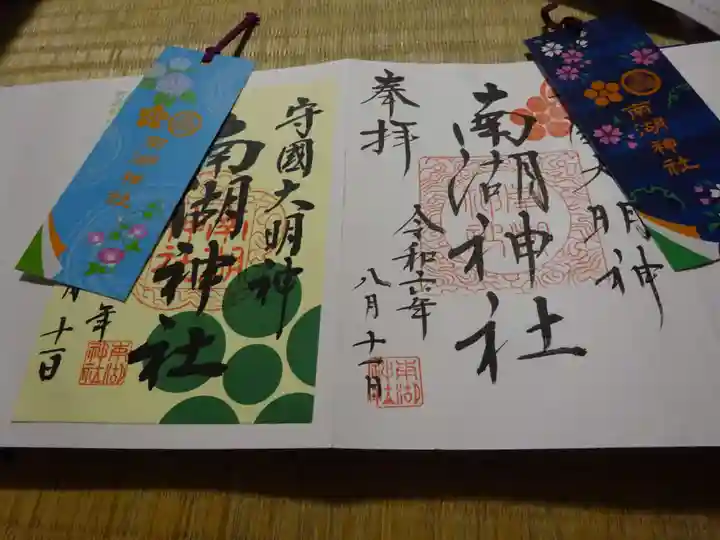 奉拝
南湖神社
大明神
令和六年
八月十一日
南湖神社
南湖神社
守國大明神
南湖神社
年
月十一日
南湖神社
南湖神社